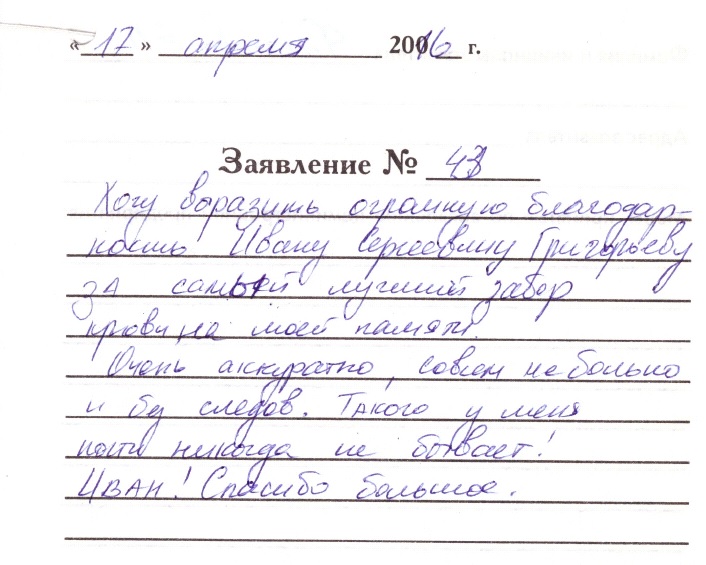 «17» апреля 2016 г.
Заявление № 43
Хочу выразить огромную благодар-
ность Ивану Сергеевичу Григорьеву
за самый лучший забор
крови на моей памяти.
Очень аккуратно, совсем не больно
и без следов. Такого у меня
почти никогда не бывает!
Иван! Спасибо большое.